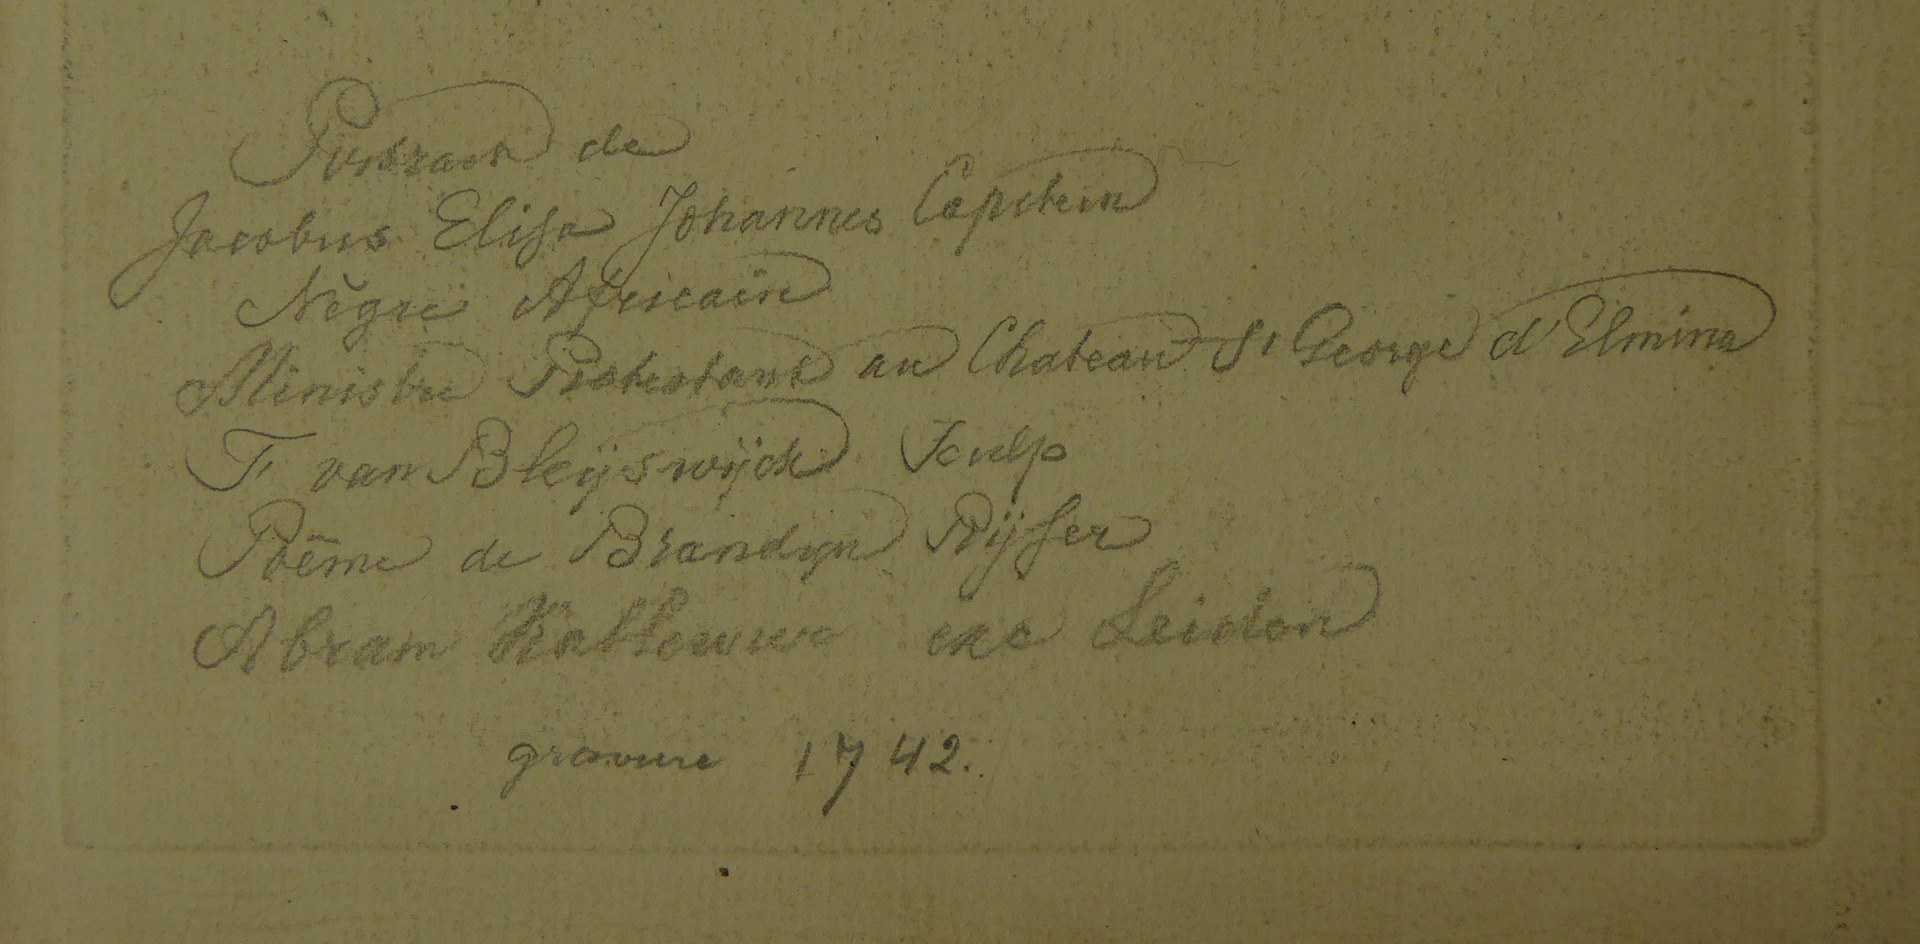 Portrait de
Jacobus Elisa Johannes Capitein
Nègre Africain
Ministre Protestant au Chateau St George d'Elmina
F van Bleÿswÿck Sculp
Poême de Brandyn Rÿser
Abram Kallewier exc Leiden
gravure 1742.